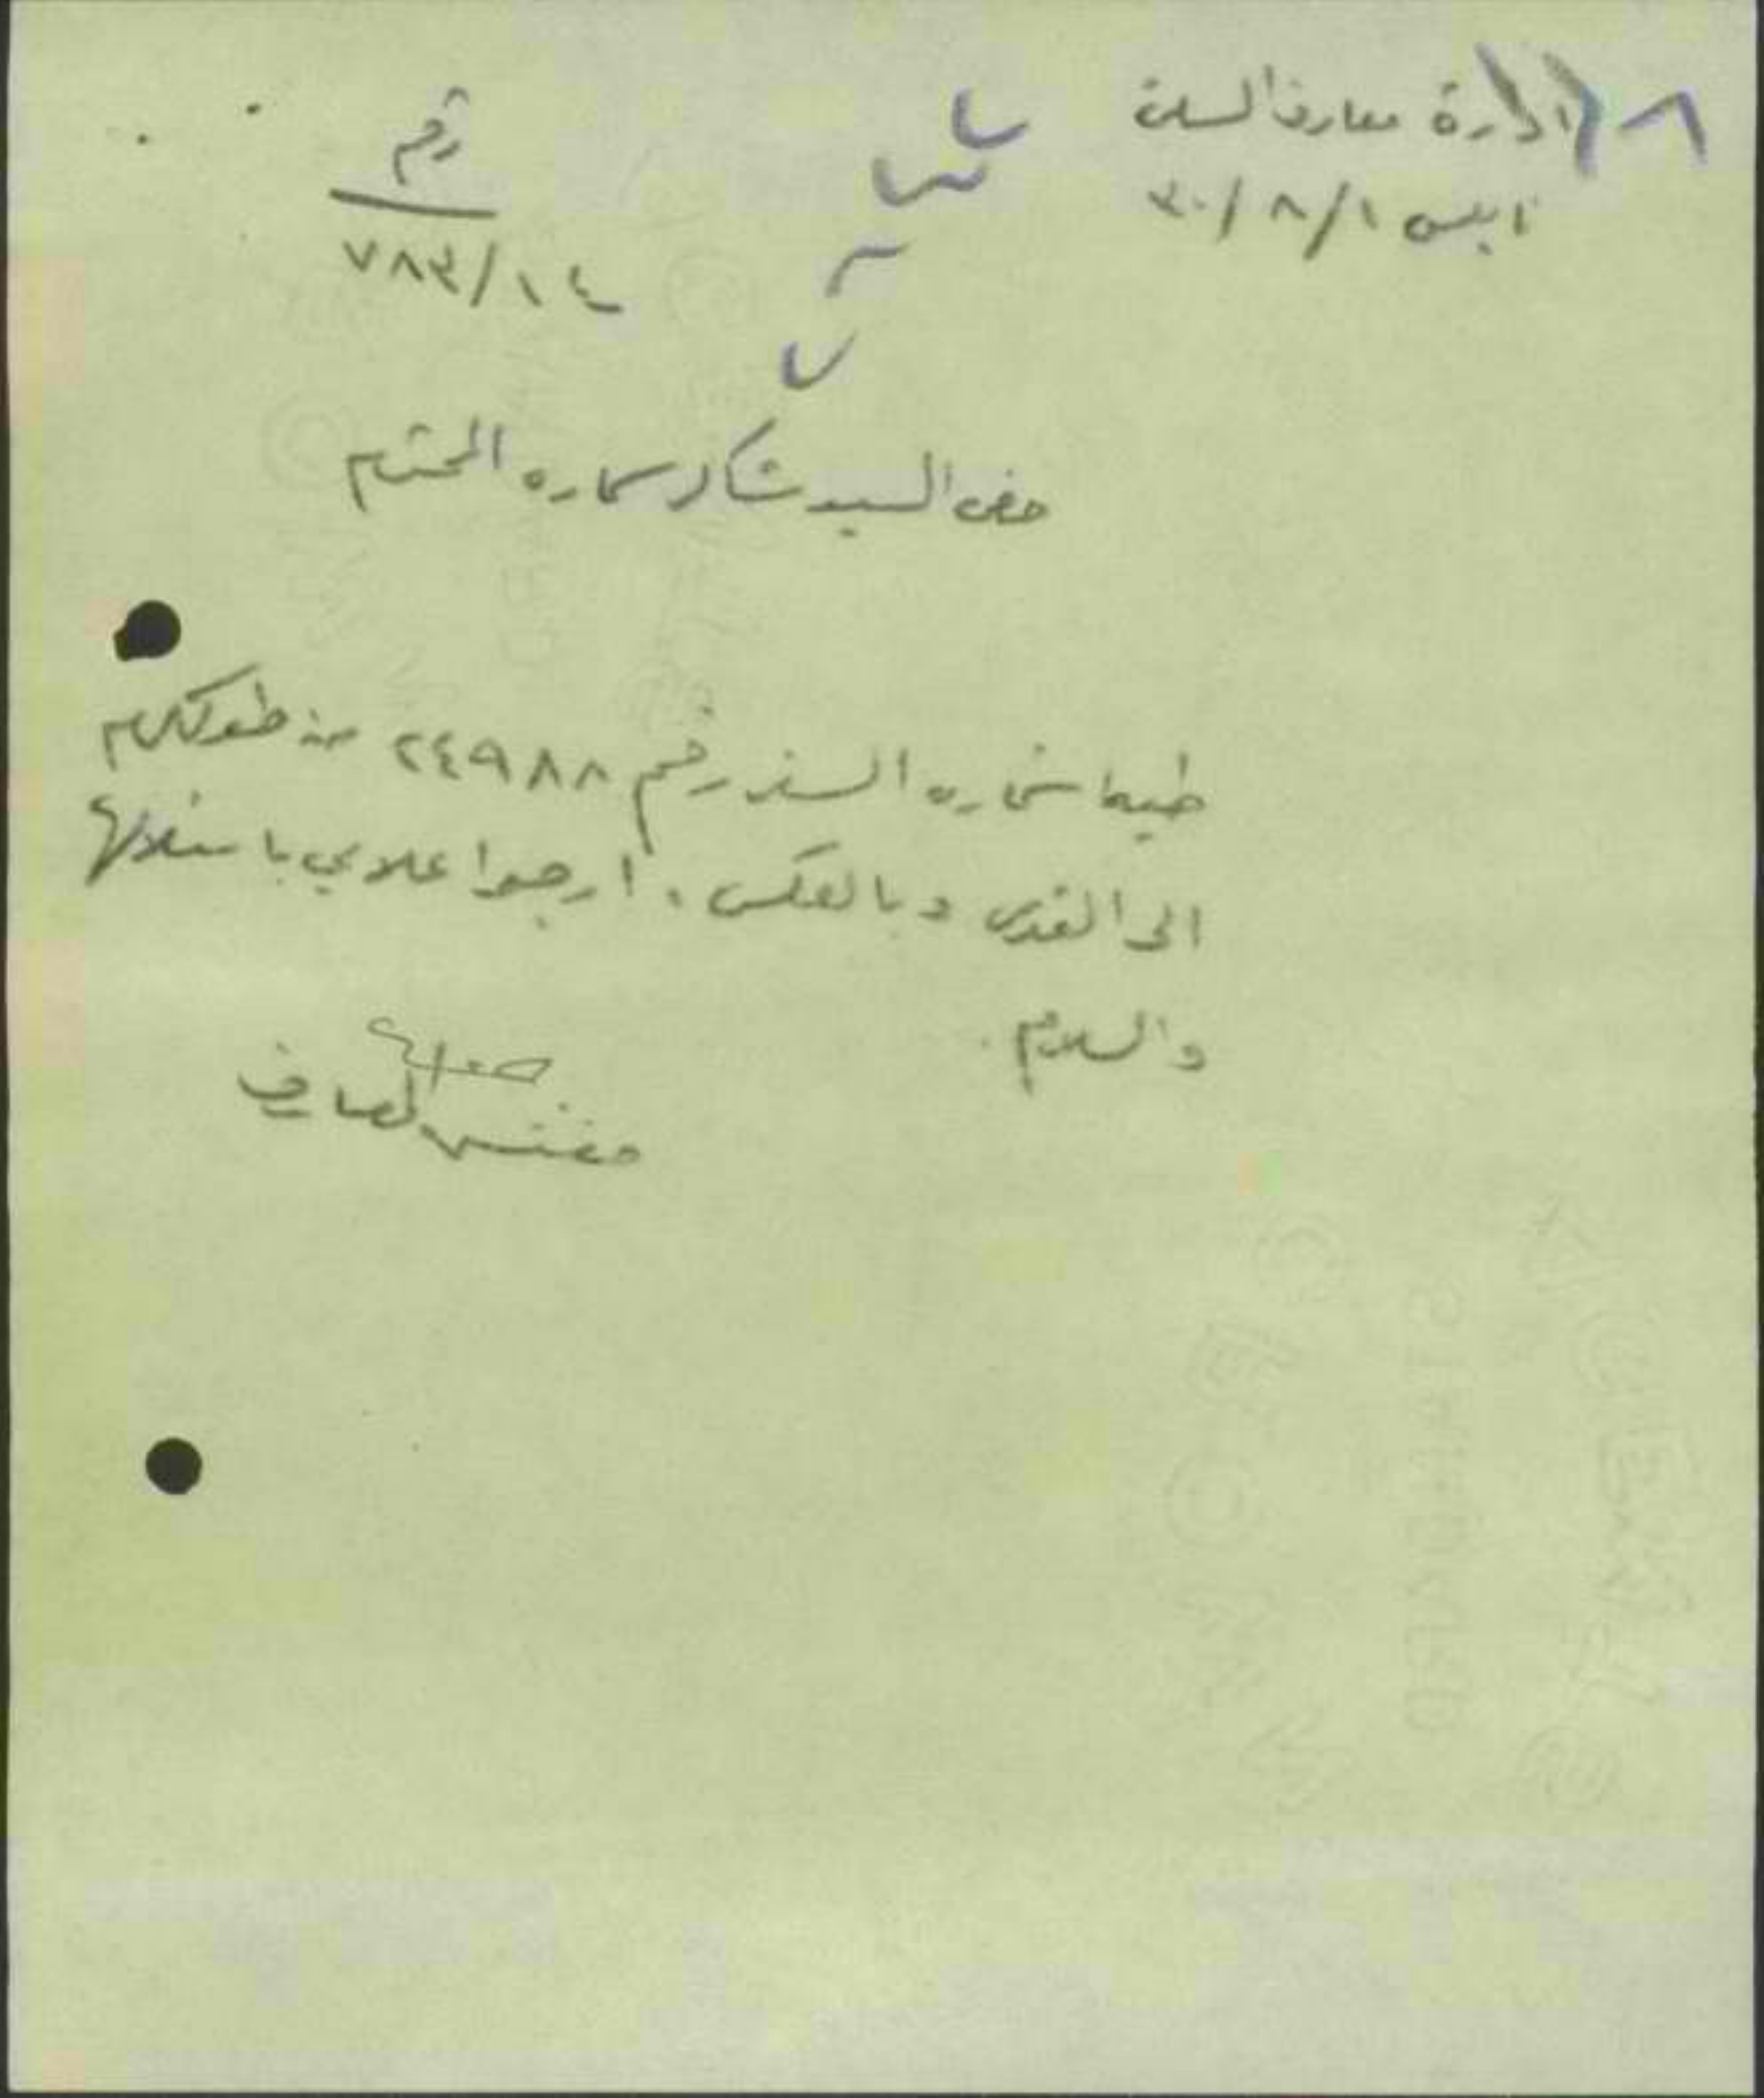 ٨
ادارة معارف السامرة
نابلس ١/٨/٣٠
رقم
٧٨٣/١٤
حضرة السيد شاكر سماره المحترم
طيه استماره السفر رقم ٢٤٩٨٨ من طولكرم
الى القدس وبالعكس. ارجو اعلامي باستلامها
والسلام.
مفتش المعارف